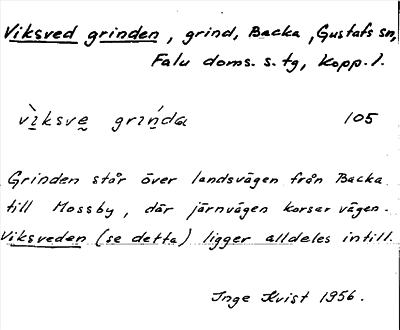 Viksved grinden, grind, Backa, Gustafs sn,
Falu doms. s. tg, Kopp. l.
vìksve grińda 105
Grinden står över landsvägen från Backa
till Mossby, där järnvägen korsar vägen.
Viksveden (se detta) ligger alldeles intill.
Inge Kvist 1956.